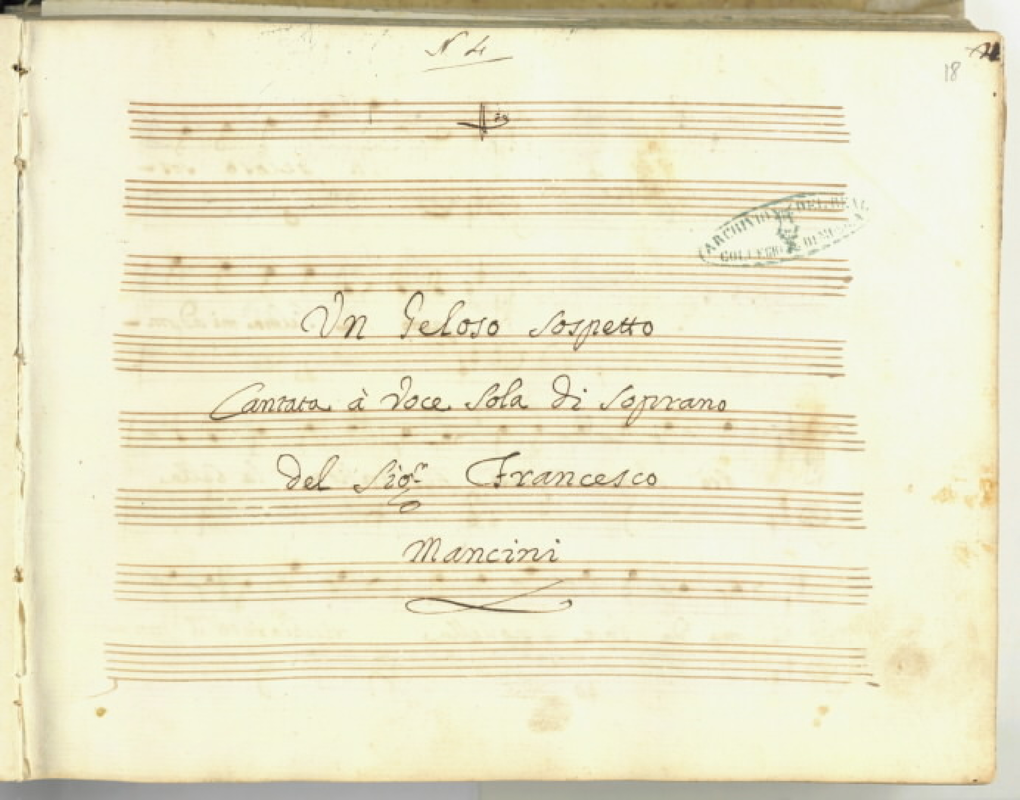 N 4
18
ARCHIVIO DEL REAL
COLLEGIO DI MUSICA
Un Geloso Sospetto
Cantata à Voce Sola Di Soprano
Del Sig.r Francesco
Mancini